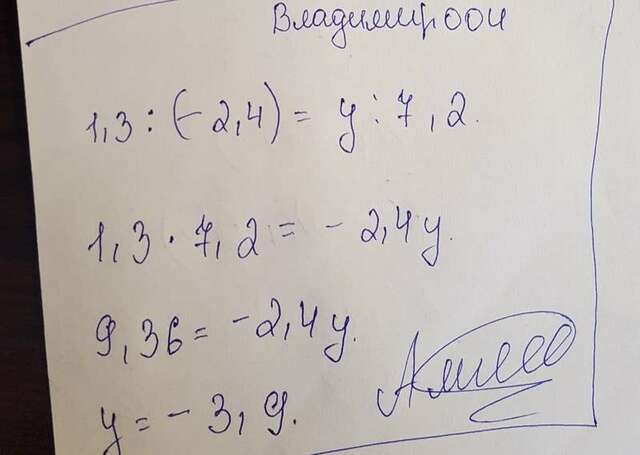 Владимир004
1,3 : (-2,4) = y : 7,2.
1,3 · 7,2 = -2,4y.
9,36 = -2,4y.
y = -3,9.